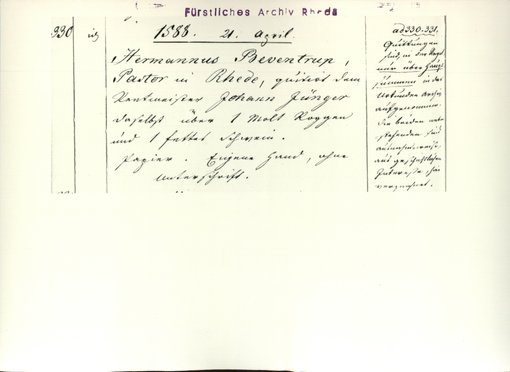 Fürstliches Archiv Rheda
330
1588. 21. April.
Hermannus Beventrup,
Pastor in Rhede, quitirt dem
Rentmeister Johann Jünger
daselbst über 1 Molt Roggen
und 1 fettes Schwein.
Papier. Eigene Hand, ohne
Unterschrift.
ad 330. 331.
Quittungen
sind, in der Regel
nur über Haupt
summen in das
Urkunden Archiv
aufgenommen.
Die beiden neben
stehenden sind
ausnahmsweise
aus geschichtlichem
Interesse hier
verzeichnet.